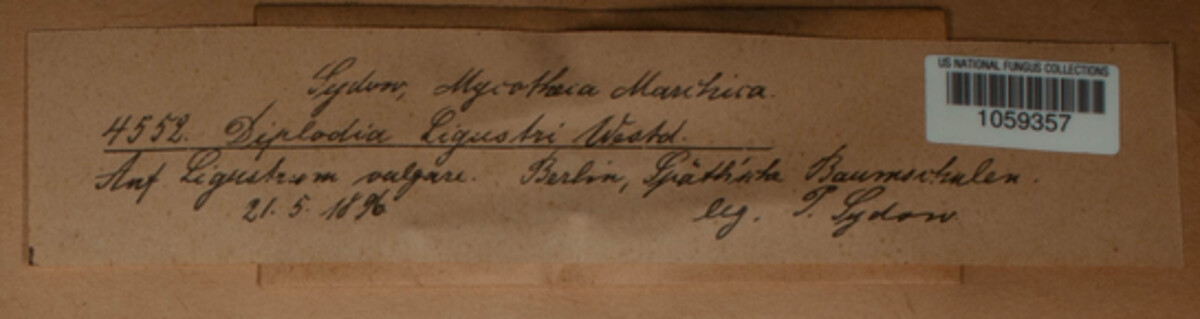 Sydow, Mycotheca Marchica.
4552. Diplodia Ligustri Westd.
Auf Ligustrum vulgare. Berlin, Späth'sche Baumschulen.
21. 5. 1896 leg. P. Sydow
US NATIONAL FUNGUS COLLECTIONS
1059357